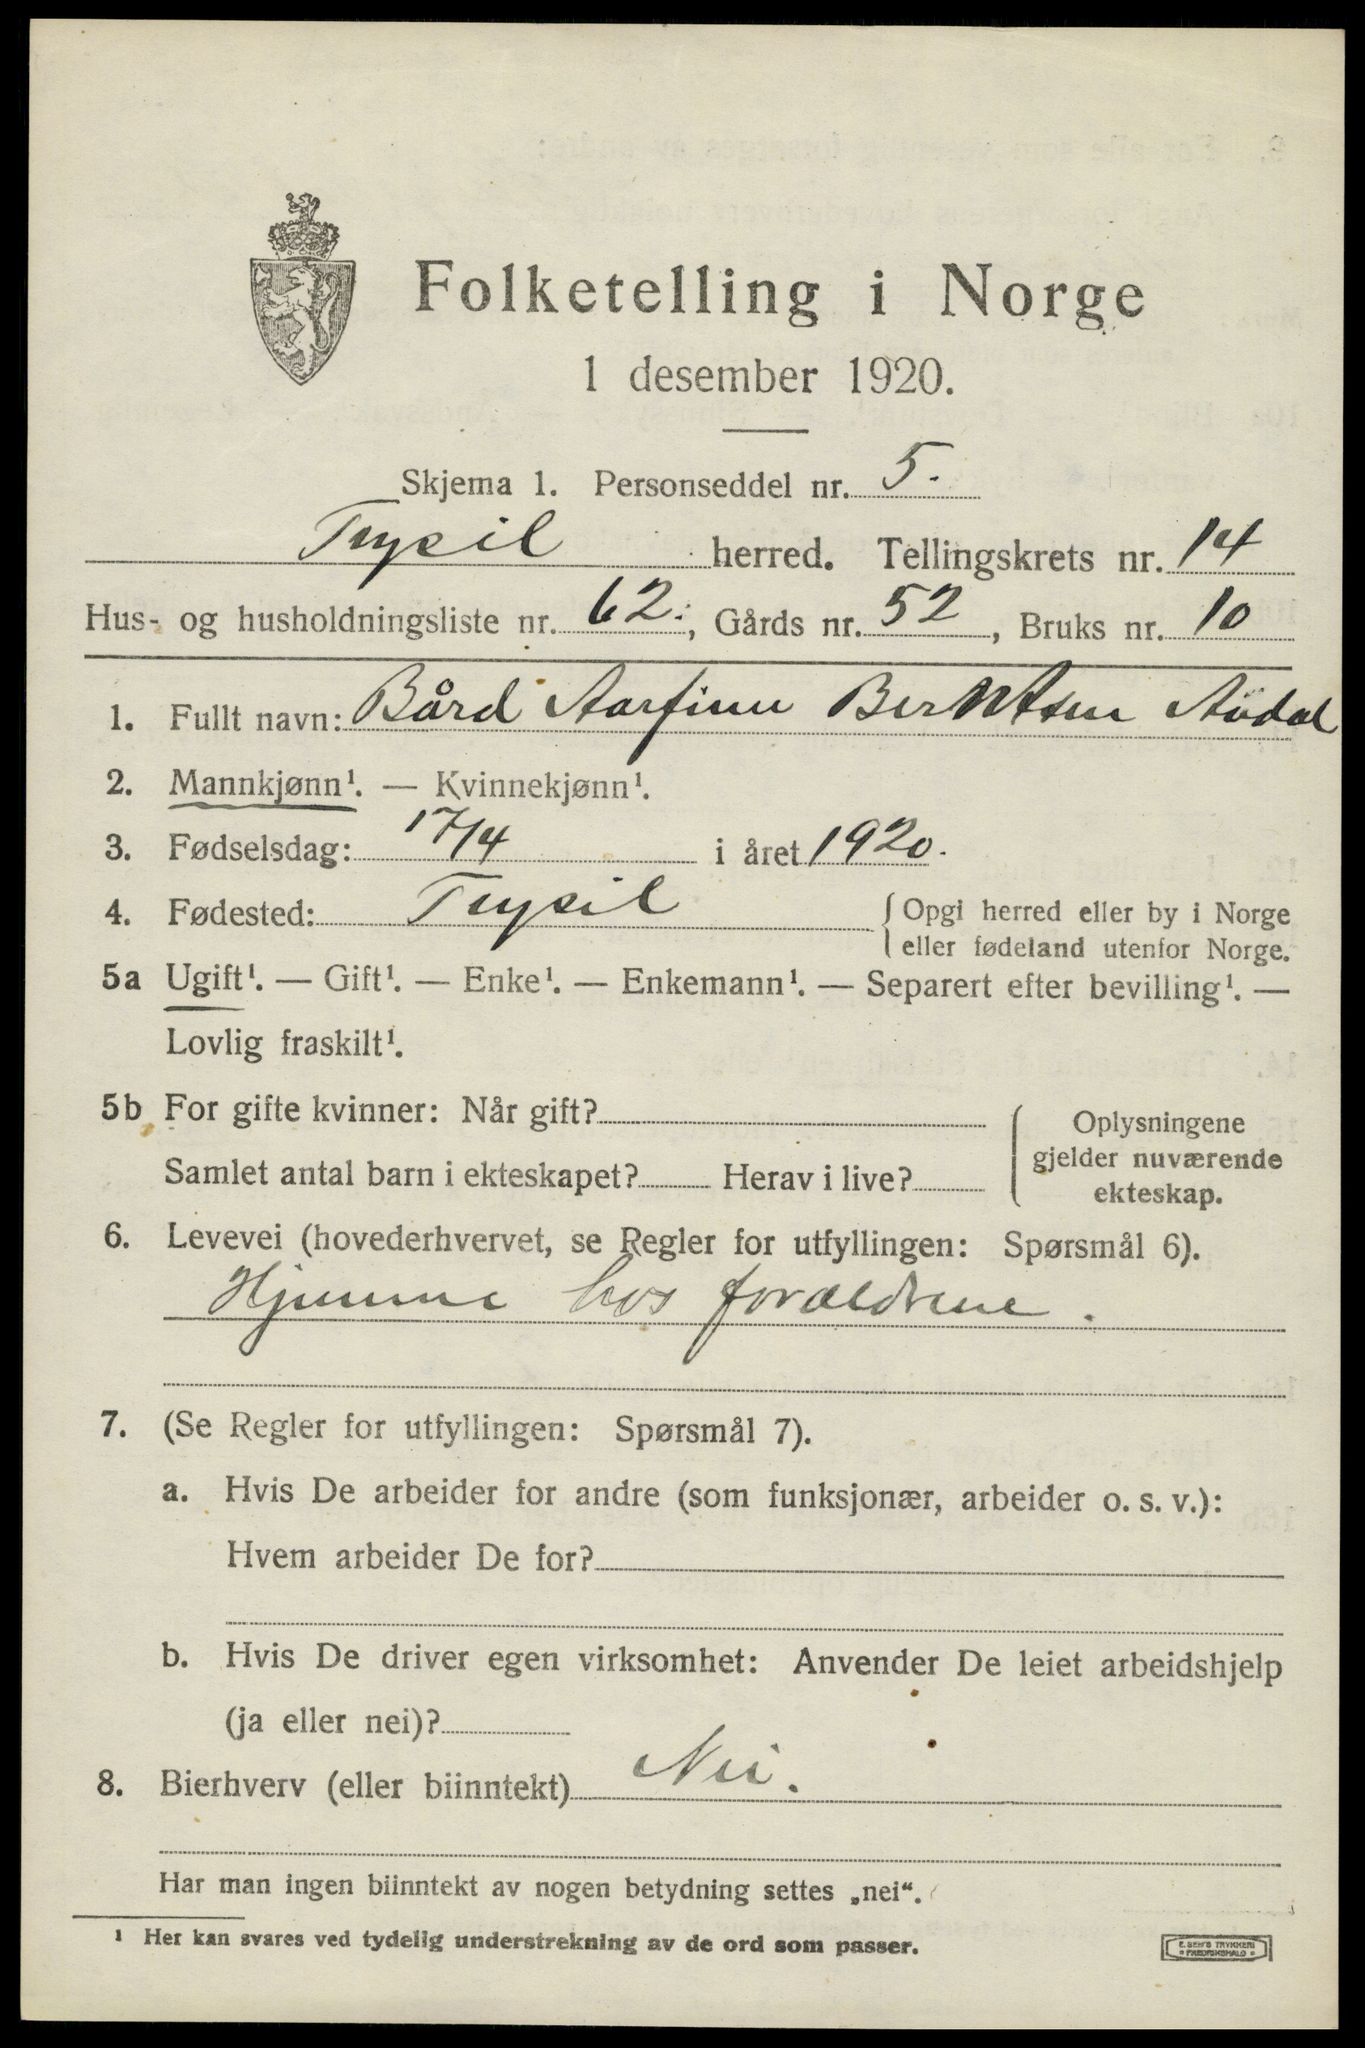 Folketelling i Norge
1 desember 1920.
Skjema 1. Personseddel nr. 5.
Trysil herred. Tellingskrets nr. 14
Hus- og husholdningsliste nr. 62., Gårds nr. 52, Bruks nr. 10
1. Fullt navn: Bård Aarfinn Berntsen
2. Mannkjønn¹. — Kvinnekjønn¹.
3. Fødselsdag: 17/4 i året 1920.
4. Fødested: Trysil { Opgi herred eller by i Norge
eller fødeland utenfor Norge.
5a Ugift¹. — Gift¹. — Enke¹. — Enkemann¹. — Separert efter bevilling¹. —
Lovlig fraskilt¹.
5b For gifte kvinner: Når gift? Oplysningene
gjelder nuværende
Samlet antal barn i ekteskapet? Herav i live? ekteskap.
6. Levevei (hovederhvervet, se Regler for utfyllingen: Spørsmål 6).
Hjemme hos forældrene.
7. (Se Regler for utfyllingen: Spørsmål 7).
a. Hvis De arbeider for andre (som funksjonær, arbeider o. s. v.):
Hvem arbeider De for?
b. Hvis De driver egen virksomhet: Anvender De leiet arbeidshjelp
(ja eller nei)?
8. Bierhverv (eller biinntekt) Nei.
Har man ingen biinntekt av nogen betydning settes „nei".
¹ Her kan svares ved tydelig understrekning av de ord som passer.
E. SEM'S TRYKKERI
FREDRIKSHALD